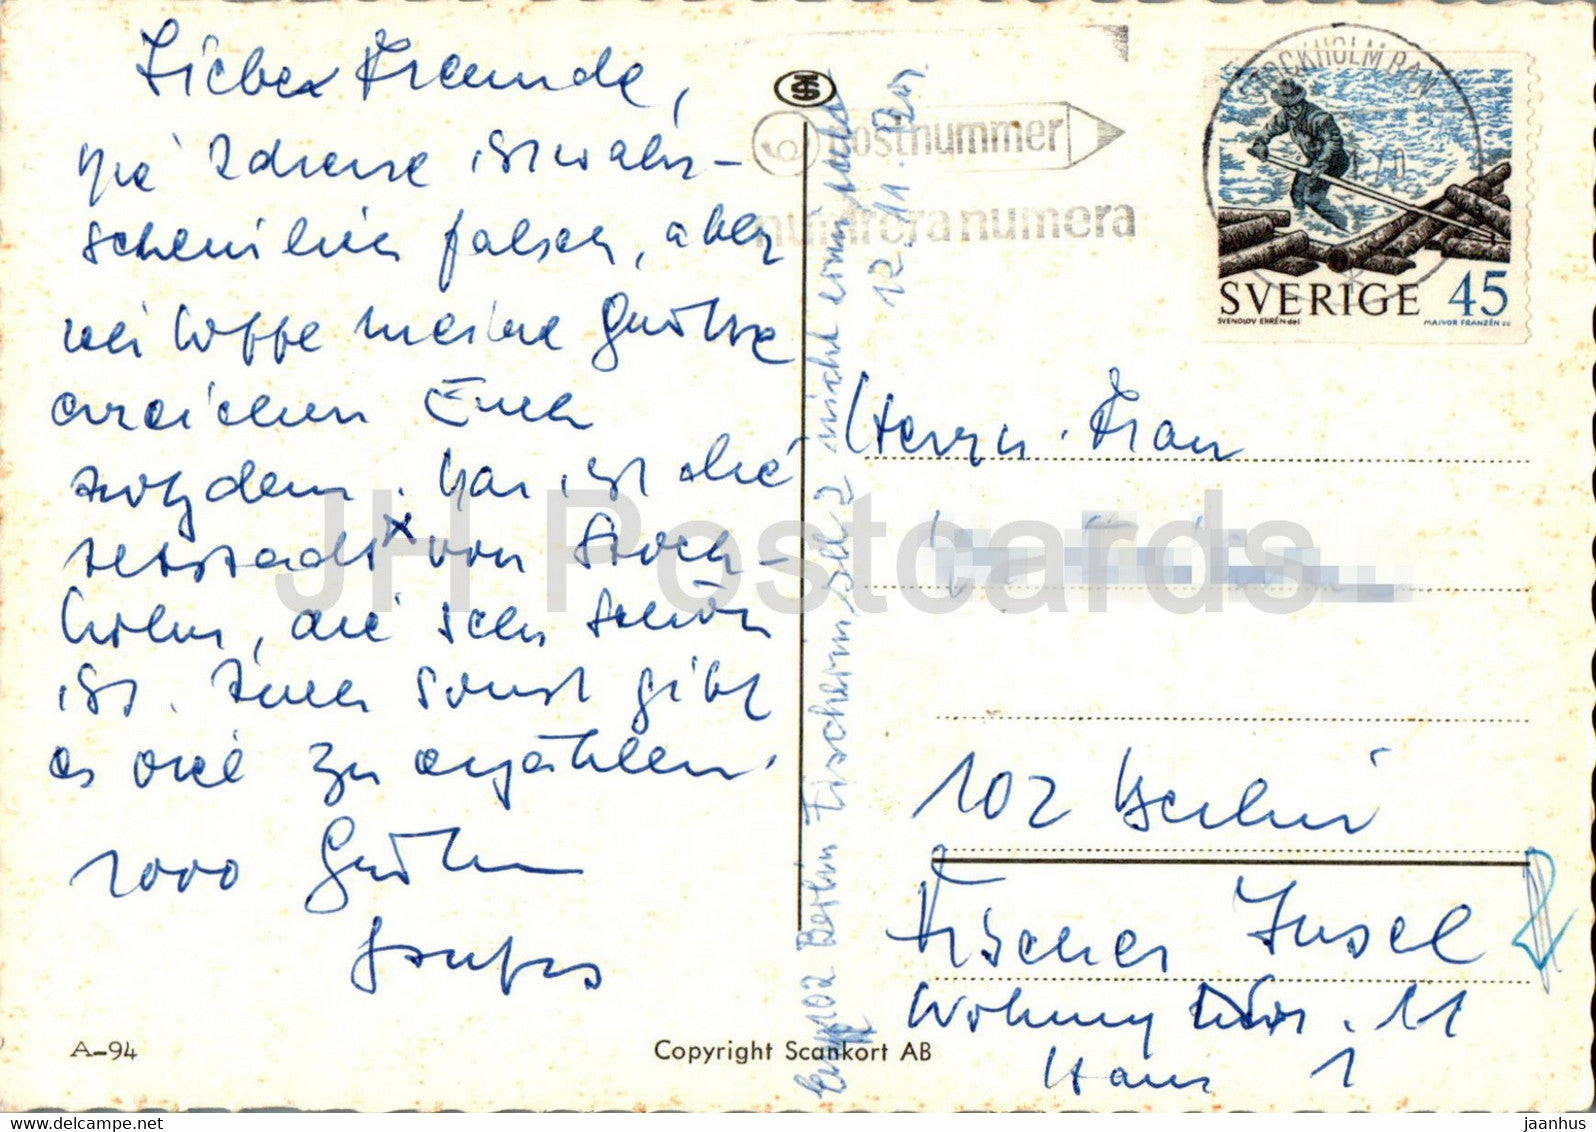 Liebe Freunde,
die Adresse ist wahr-
scheinlich falsch, aber
ich hoffe meine Grüße
erreichen Euch
trotzdem. Das ist die
von Stock-
holm, die sehr schön
ist. Auch sonst gibt
es viel zu erzählen.
1000 Grüße
A-94
Copyright Scankort AB
102 Berlin Fischerinsel 2 nicht
12. 11.
postnummer
numera
STOCKHOLM BAN
SVERIGE 45
SVENOLOV EHRÉN del
MAJVOR FRANZÉN sc
Herrn. Frau
102 Berlin
Fischer Insel
Wohnung Nr. 11
Haus 1
JH Postcards
delcampe.net
jaanhus